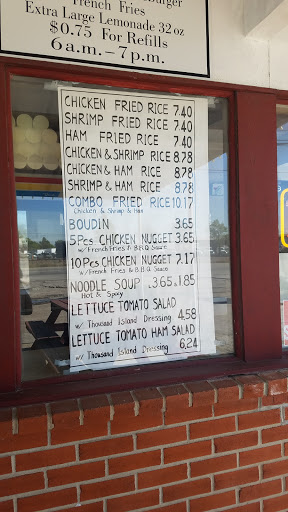 burger
French Fries
Extra Large Lemonade 32 oz
$0.75 For Refills
6a.m.–7p.m.
CHICKEN FRIED RICE 7.40
SHRIMP FRIED RICE 7.40
HAM FRIED RICE 7.40
CHICKEN & SHRIMP RICE 8.78
CHICKEN & HAM RICE 8.78
SHRIMP & HAM RICE 8.78
COMBO FRIED RICE 10.17
Chicken & Shrimp & Ham
BOUDIN 3.65
5Pcs CHICKEN NUGGET 3.65
w/French Fries & B.B.Q Sauce
10Pcs CHICKEN NUGGET 7.17
w/French Fries & B.B.Q Sauce
NOODLE SOUP .3.65 & 1.85
Hot & Spicy
LETTUCE TOMATO SALAD
w/ Thousand Island Dressing 4.58
LETTUCE TOMATO HAM SALAD
w/ Thousand Island Dressing 6.24